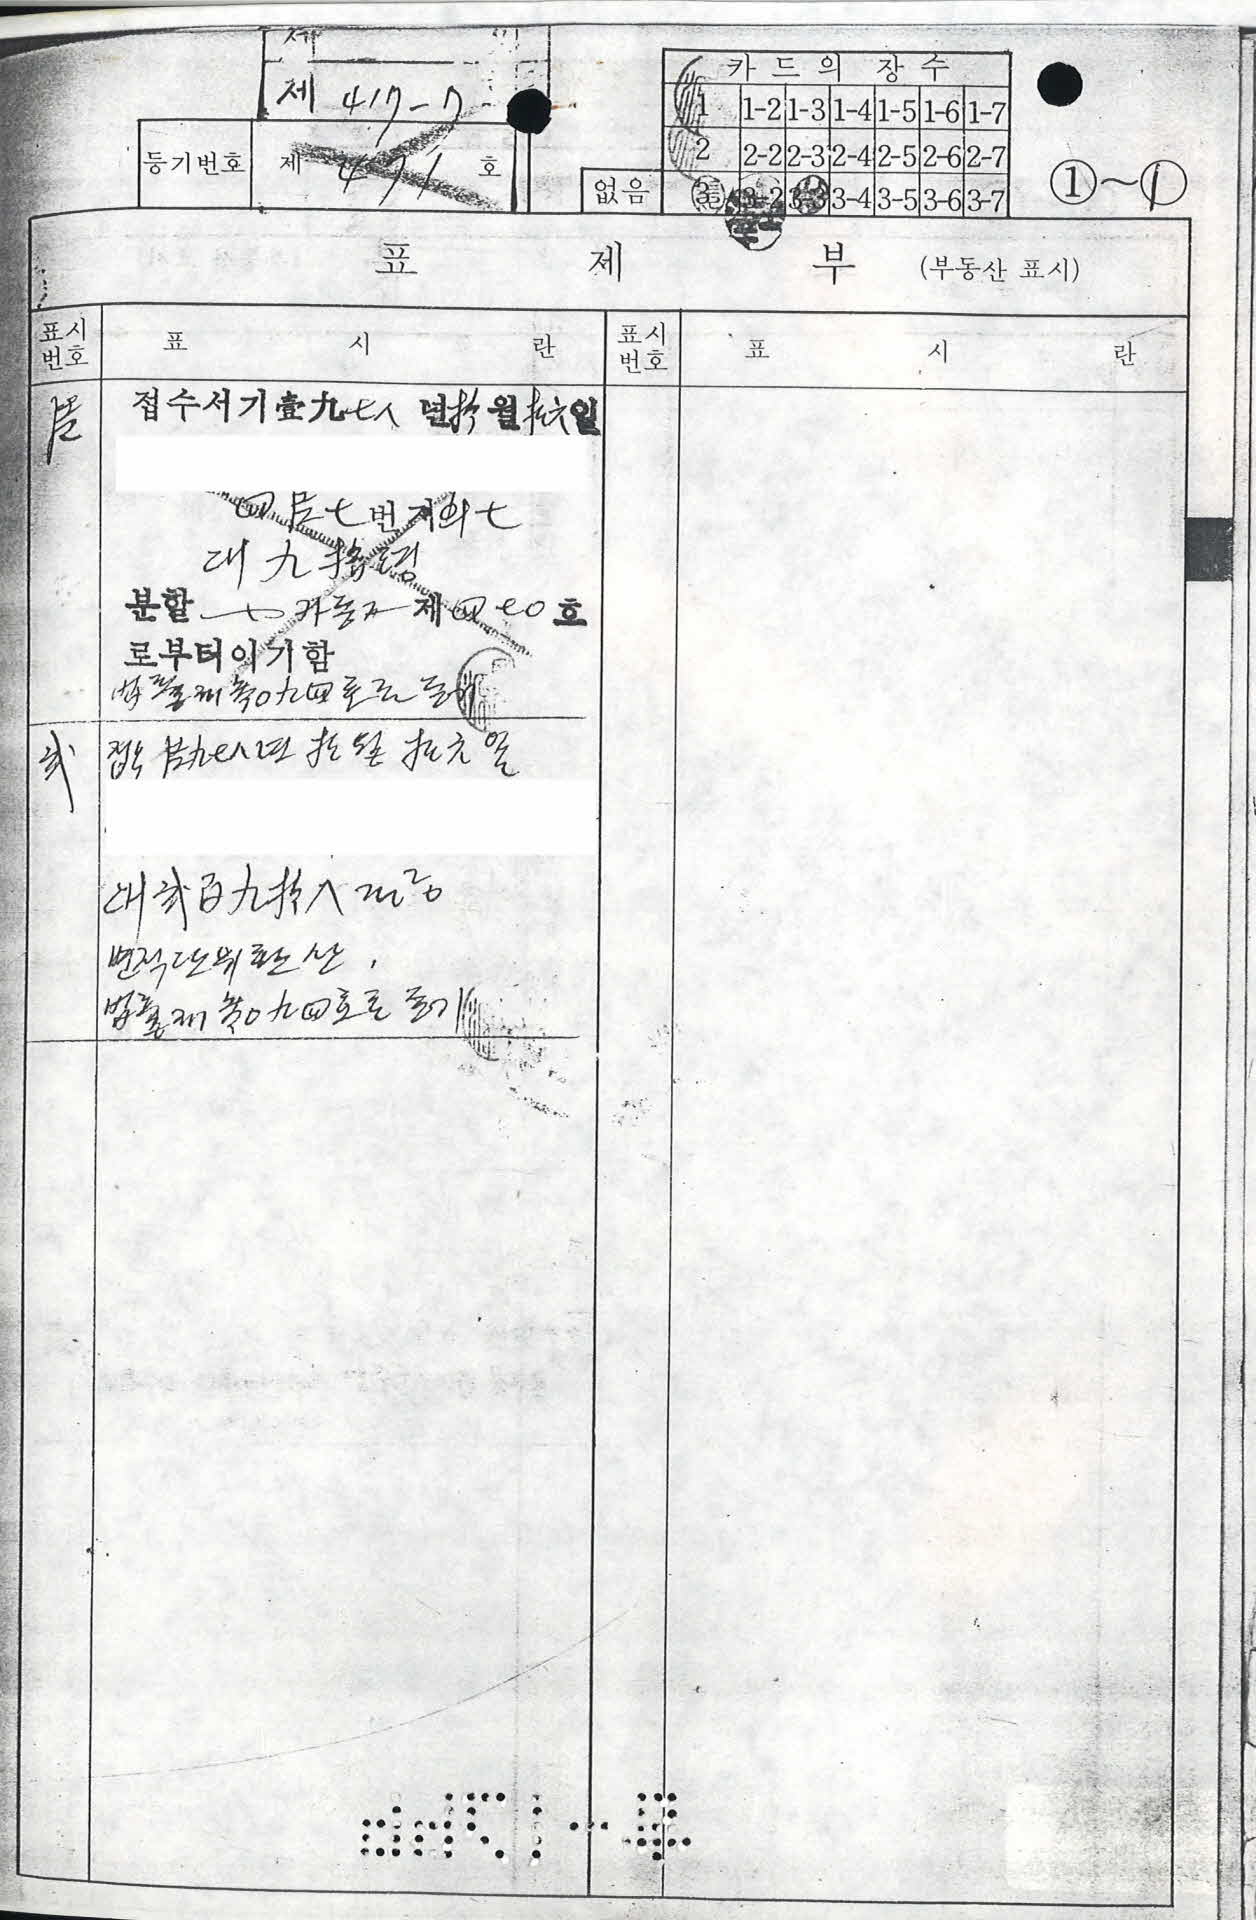 제 417-7
등기번호 제 471 호
카드의 장수
1 1-2 1-3 1-4 1-5 1-6 1-7
2 2-2 2-3 2-4 2-5 2-6 2-7
없음 3 3-2 3-3 3-4 3-5 3-6 3-7
①~①
표 제 부 (부동산 표시)
표시번호 표 시 란 표시번호 표 시 란
접수서기壹九七八 년拾월拾六일
四壱七번지의七
대 九拾평
분할 제四七０호
로부터이기함
법률제 九四호로 등기
弐 접수 壱九七八년 拾월 拾六일
대 弐百九拾八
면적단위환산.
법률제 九四호로 등기